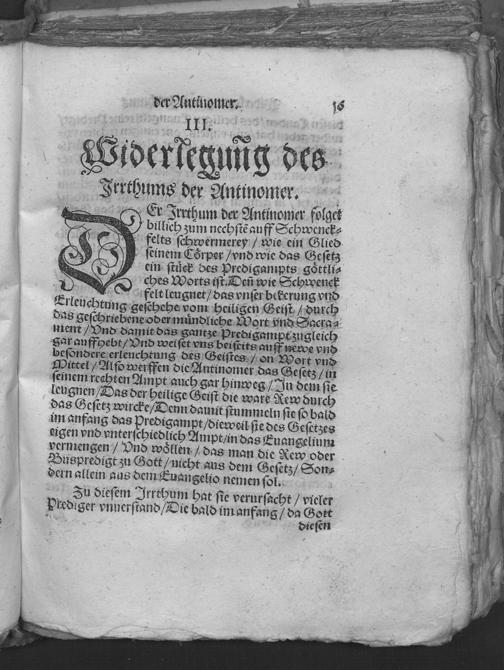 der Antinomer. 56
III.
Widerlegung̃ des
Jrrthums der Antinomer.
DEr Jrrthum der Antinomer folget
billich zum nechstẽ auff Schwenck-
felts schwermerey / wie ein Glied
seinem Cörper / vnd wie das Gesetz
ein stück des Predigampts göttli-
ches Worts ist. Deñ wie Schwenck
felt leugnet / das vnser bekerung vnd
Erleuchtung geschehe vom heiligen Geist / durch
das geschriebene oder mündliche Wort vnd Sacra-
ment / Vnd damit das gantze Predigampt zugleich
gar auffhebt / Vnd weiset vns beiseits auff newe vnd
besondere erleuchtung des Geistes / on Wort vnd
Mittel / Also werffen die Antinomer das Gesetz / in
seinem rechten Ampt auch gar hinweg / Jn dem sie
leugnen / Das der heilige Geist die ware Rew durch
das Gesetz wircke / Denn damit stummeln sie so bald
im anfang das Predigampt / dieweil sie des Gesetzes
eigen vnd vnterschiedlich Ampt / in das Euangelium
vermengen / Vnd wöllen / das man die Rew oder
Buspredigt zu Gott / nicht aus dem Gesetz / Son-
dern allein aus dem Euangelio nemen sol.
Zu diesem Jrrthum hat sie verursacht / vieler
Prediger vnuerstand / Die bald im anfang / da Gott
diesen